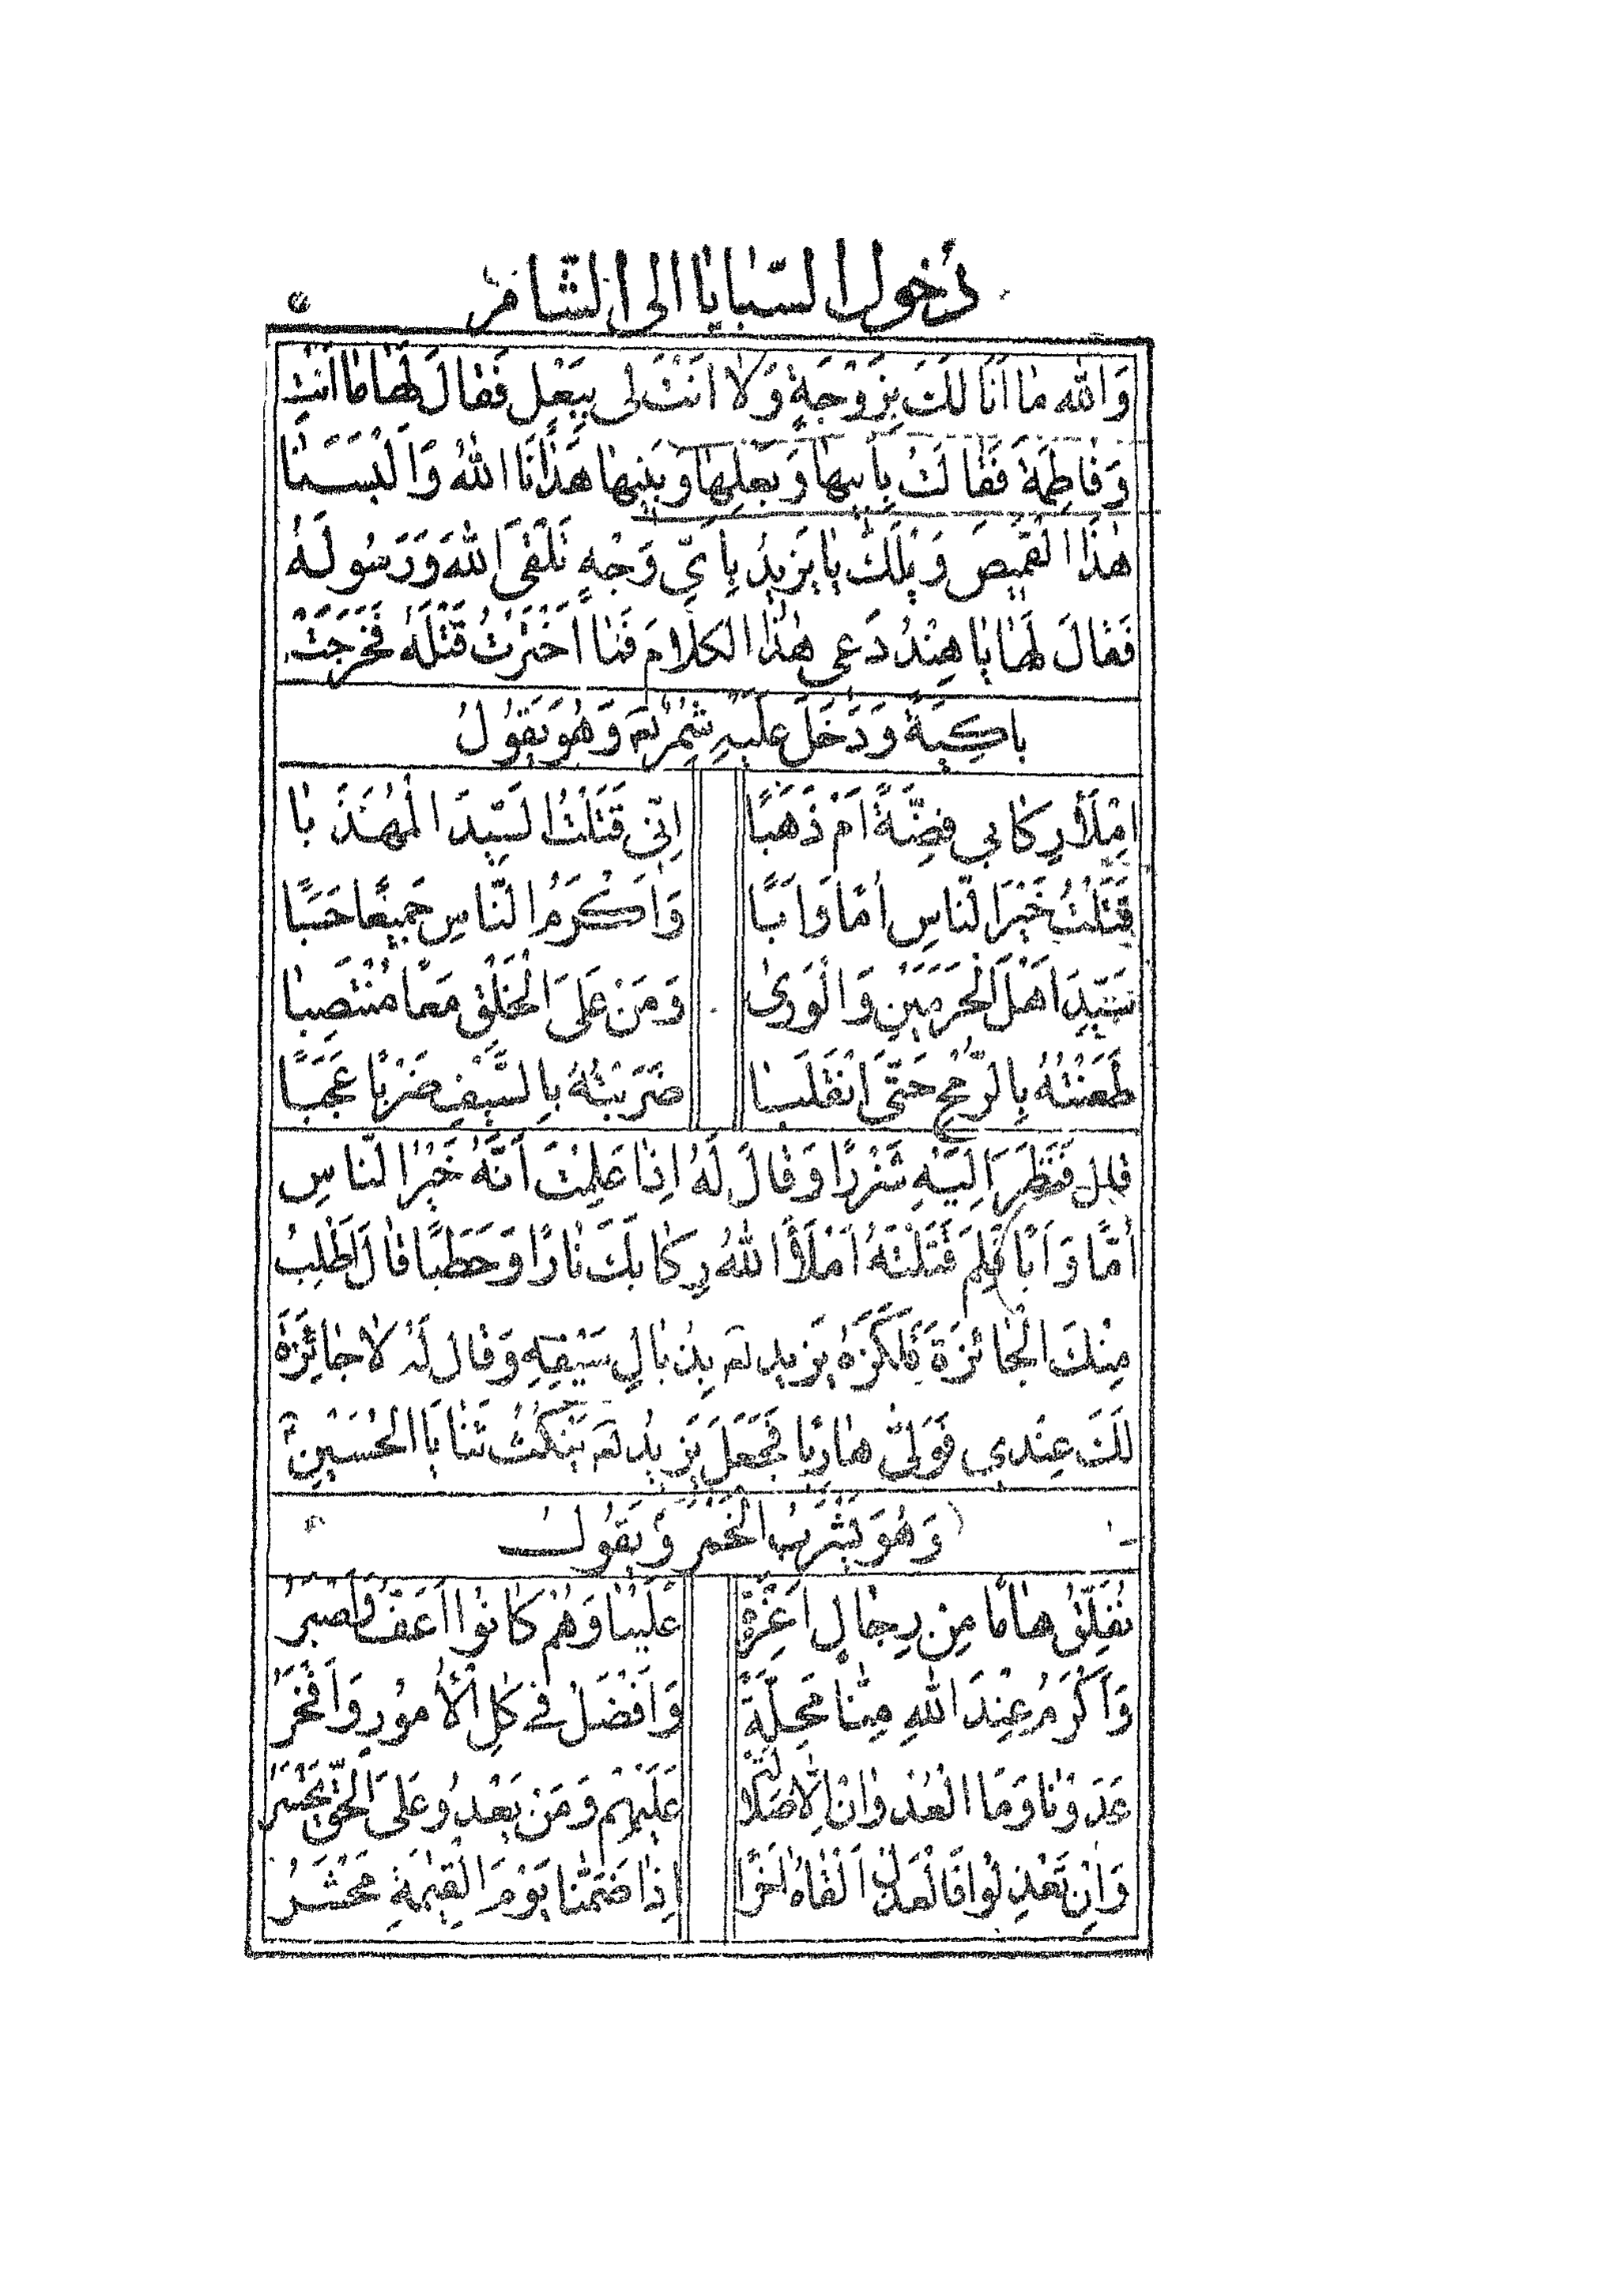 دُخُولُ السَّبَايَا إِلَى الشَّامِ
وَاللهِ مَا أَنَا لَكَ بِزَوْجَةٍ وَلَا أَنْتَ لِي بِبَعْلٍ فَقَالَ لَهَا مَا أَنْتِ
وَفَاطِمَةَ فَقَالَتْ بِأَبِيهَا وَبَعْلِهَا وَبَنِيهَا هَدَانَا اللهُ وَأَلْبَسَنَا
هٰذَا الْقَمِيصَ وَيْلَكَ يَا يَزِيدُ بِأَيِّ وَجْهٍ تَلْقَى اللهَ وَرَسُولَهُ
فَقَالَ لَهَا يَا هِنْدُ دَعِي هٰذَا الْكَلَامَ فَمَا أَخْتَرْتُ قَتْلَهُ فَخَرَجَتْ
بَاكِيَةً وَدَخَلَ عَلَيْهِ شِمْرٌ لَعَ وَهُوَ يَقُولُ
إِمْلَأْ رِكَابِي فِضَّةً أَمْ ذَهَبًا إِنِّي قَتَلْتُ السَّيِّدَ الْمُهَذَّبَا
قَتَلْتُ خَيْرَ النَّاسِ أُمًّا وَأَبًا وَأَكْرَمُ النَّاسِ جَمِيعًا حَسَبًا
سَيِّدَ أَهْلَ الْحَرَمَيْنِ وَالْوَرَى وَمَنْ عَلَى الْخَلْقِ مَعًا مُنْتَصِبًا
طَعَنْتُهُ بِالرُّمْحِ حَتَّى انْقَلَبَا ضَرَبْتُهُ بِالسَّيْفِ ضَرْبًا عَجَبًا
قَالَ فَنَظَرَ إِلَيْهِ شَزْرًا وَقَالَ لَهُ إِذَا عَلِمْتَ أَنَّهُ خَيْرُ النَّاسِ
أُمًّا وَأَبًا فَلِمَ قَتَلْتَهُ أَمْلَأَ اللهُ رِكَابَكَ نَارًا وَحَطَبًا قَالَ أَطْلُبُ
مِنْكَ الْجَائِزَةَ فَلَكَزَهُ يَزِيد لَعَ بِذُبَالِ سَيْفِهِ وَقَالَ لَهُ لَا جَائِزَةَ
لَكَ عِنْدِي فَوَلَّى هَارِبًا فَجَعَلَ يَزِيدُ لَعَ يَنْكُتُ ثَنَايَا الْحُسَيْنِ
وَهُوَ يَشْرَبُ الْخَمْرَ وَيَقُولُ
نُفَلِّقُ هَامًا مِنْ رِجَالٍ أَعِزَّةٍ عَلَيْنَا وَهُمْ كَانُوا أَعَفَّ وَأَصْبَرُ
وَأَكْرَمُ عِنْدَ اللهِ مِنَّا مَحِلَّةً وَأَفْضَلُ فِي كُلِّ الْأُمُورِ وَأَفْخَرُ
عَدَوْنَا وَمَا الْعُدْوَانُ إِلَّا ضَلَالَةٌ عَلَيْهِمْ وَمَنْ يَعْدُو عَلَى الْحَقِّ يَخْسَرُ
وَإِنْ تَعْدِلُوا فَالْعَدْلُ أَلْقَاهُ آخِرًا إِذَا ضَمَّنَا يَوْمَ الْقِيٰمَةِ مَحْشَرُ